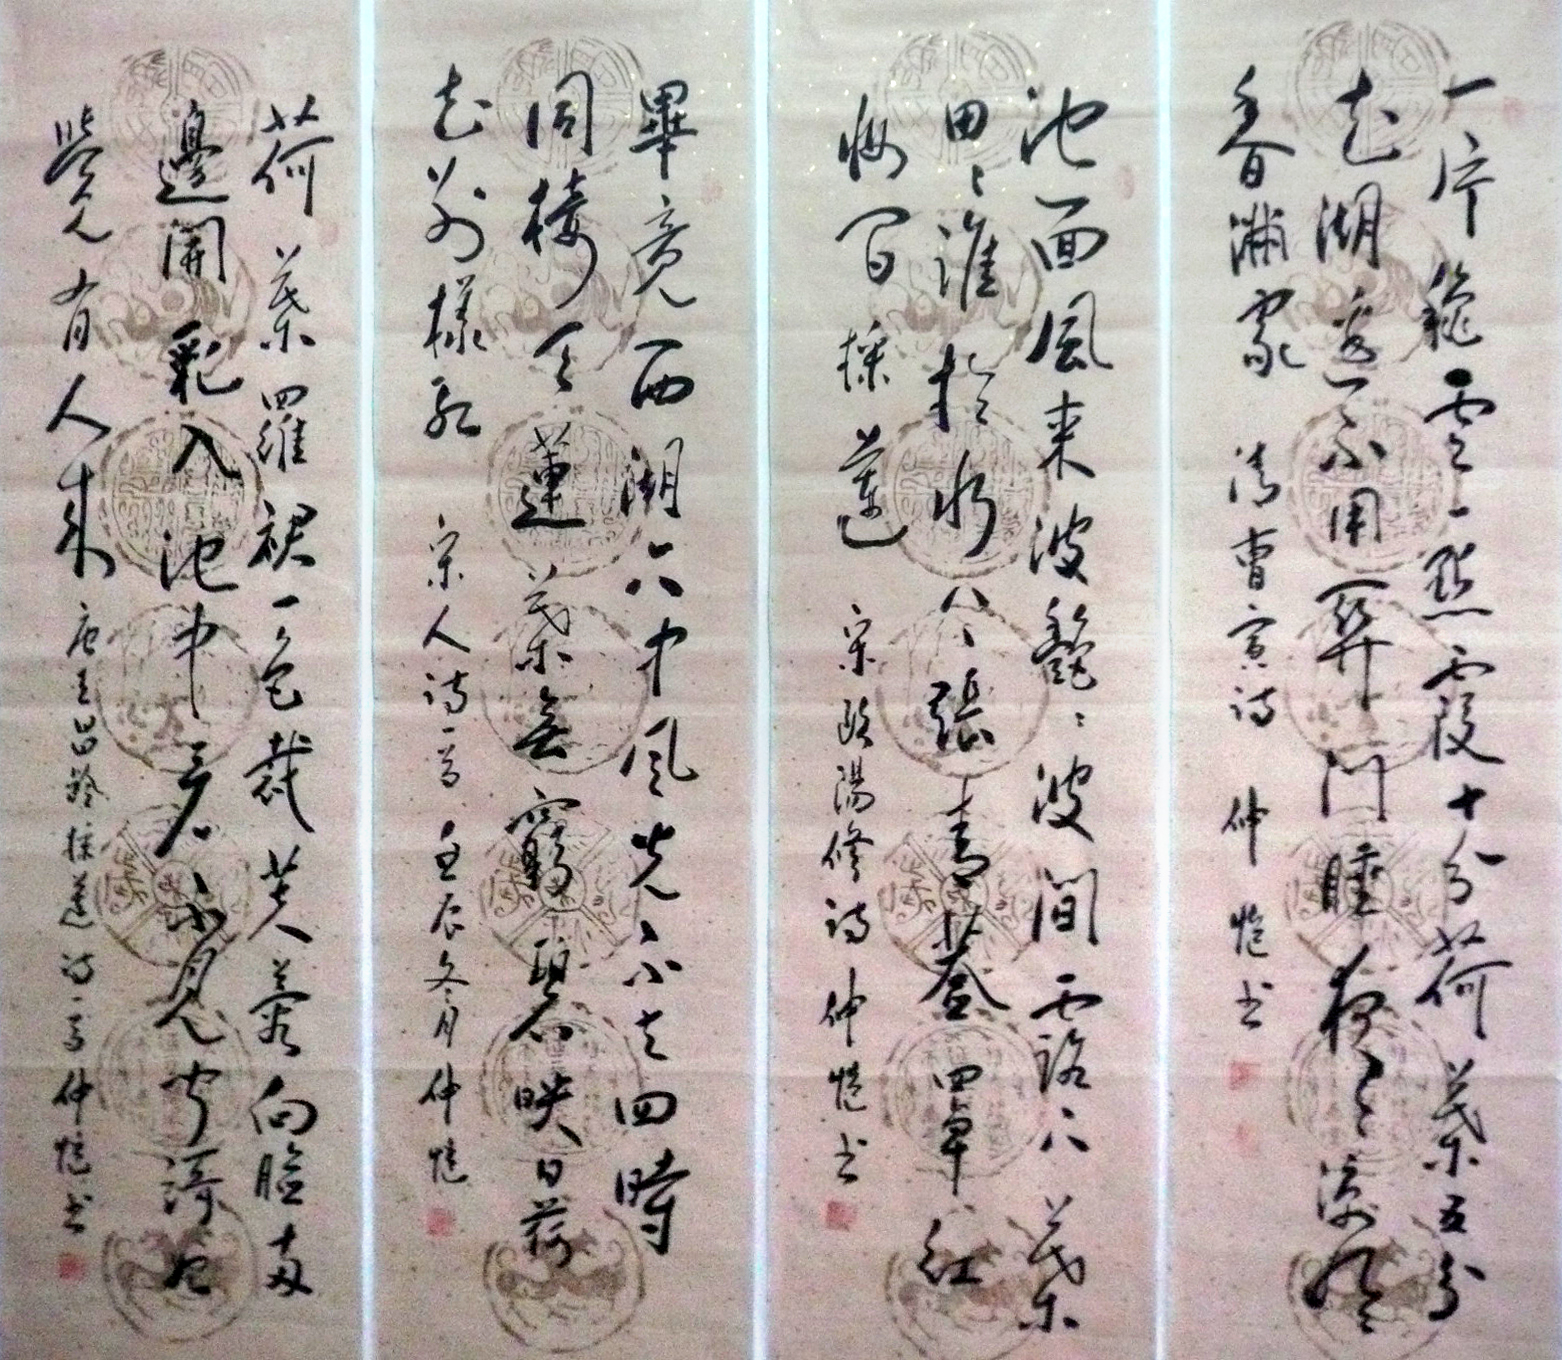 一片龝雲一點霞十分荷葉五分
花湖邊不用關門睡夜々涼風
香滿家 清曹寅詩 仲愷书
池面風来波艷々波間露下葉
田々誰於水張青蓋罩紅
妝採蓮 宋歐陽修詩 仲愷书
畢竟西湖六中風光不与四時
同接天蓮葉無窮碧映日荷
花別樣紅 宋人詩一首 壬辰冬月仲愷
荷葉羅裙一色裁芙蓉向臉兩
邊開亂入池中看不見聞謌始
覺有人來 唐王昌齡採蓮詩一首 仲愷书